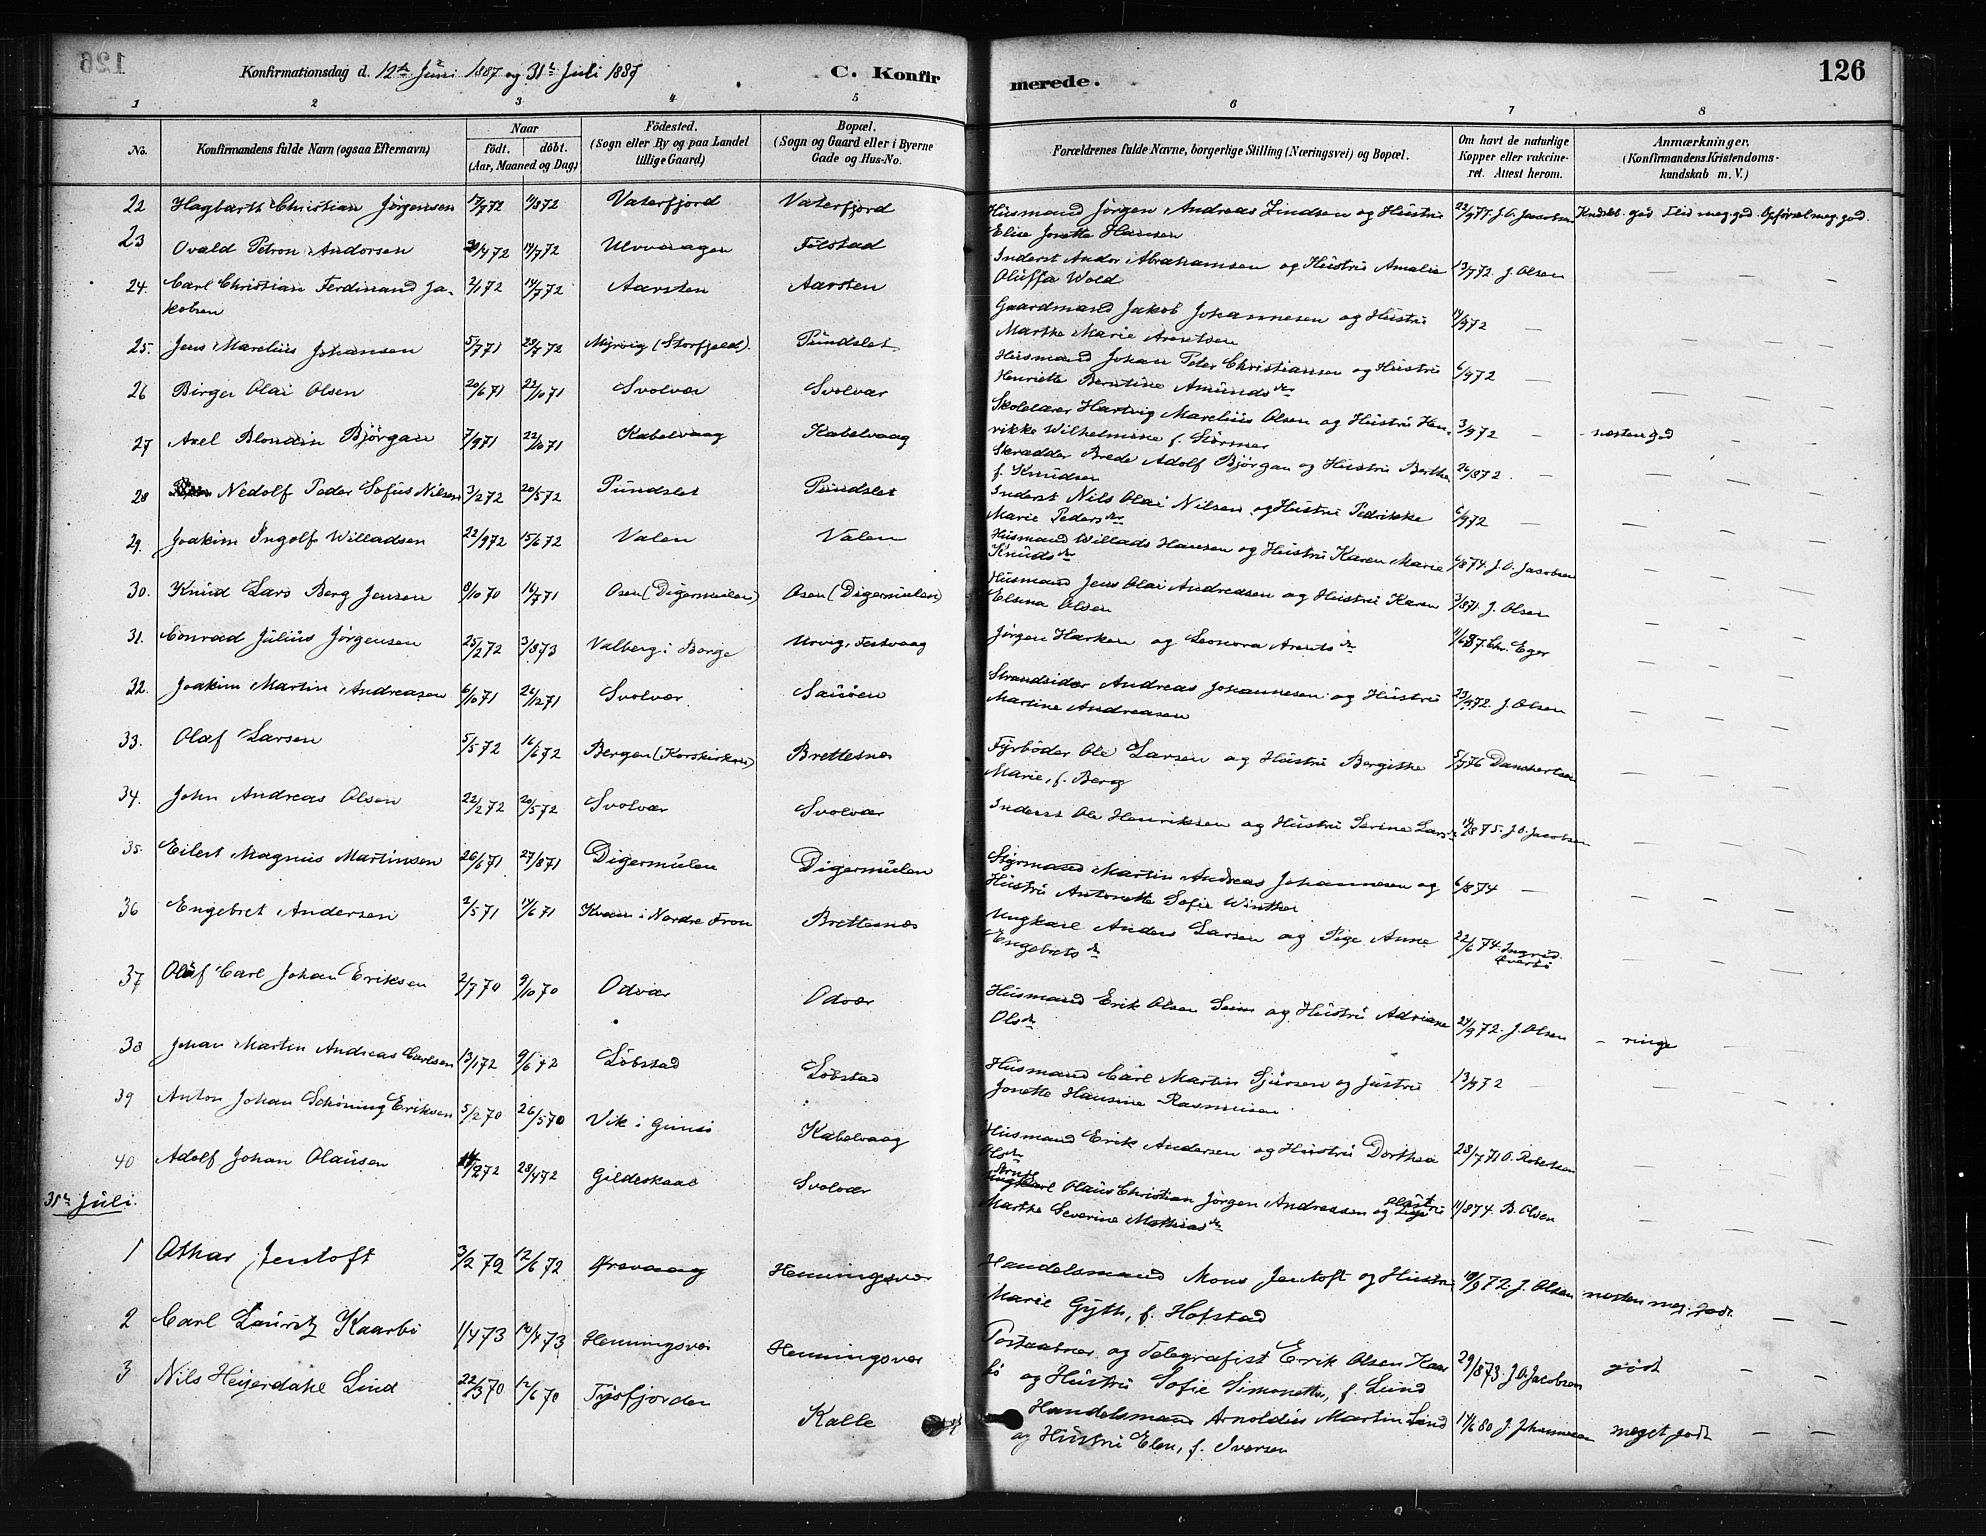 126
Konfirmationsdag d. 12te Juni 1887 og 31te Juli 1887
C. Konfir merede.
1 2 3 4 5 6 7 8
No. Konfirmandens fulde Navn (ogsaa Efternavn) Naar født. døbt. (Aar, Maaned og Dag) Fødested. (Sogn eller By og paa Landet tillige Gaard) Bopæl. (Sogn og Gaard eller i Byerne Gade og Hus-No. Forældrenes fulde Navne, borgerlige Stilling (Næringsvei) og Bopæl. Om havt de naturlige Kopper eller vakcineret. Attest herom. Anmærkninger. (Konfirmandens Kristendomskundskab m. V.)
22 Hagbarth Christian Jørgensen Vaterfjord Vaterfjord Husmand Jørgen Andreas Lindsen og Hustru
Elise Jonette Hansen
23 Ovald Petron Andorsen 30/4 72 14/7 72 Ulvvaagen Filstad Inderst Andor Abrahamsen og Hustru Amalie
Oluffa Wold 13/9 72. J. Olsen
24. Carl Christian Ferdinand Ja-
kobsen 2/1 72 14/7 72 Aarsten Aarsten Gaardmand Jakob Johannesen og Hustru
Marthe Marie Arentsen
25. Jens Marelius Johansen 5/7 71 29/7 72 Myrvig (Storfjeld). Pundslet Husmand Johan Peter Christiansen og Hustru
Henriette Berntine Amundsdtr 6/9 72 —
26 Birger Olai Olsen 20/6 71 22/10 71 Svolvær Svolvær Skolelærer Hartvig Marelius Olsen og Hustru Hen-
rikke Wilhelmine f. Størmer 3/9 72 —
27 Axel Blondin Bjørgan 7/9 71 22/10 71 Kabelvaag Kabelvaag Skrædder Brede Adolf Bjørgan og Hustru Berthe
f. Knudsen 26/8 72. — - næsten god
28 Nedolf Peder Sofus Nilsen 3/2 72 20/5 72 Pundslet Pundslet Inderst Nils Olai Nilsen og Hustru Pedrikke
Marie Pedersdtr 6/9 72 —
29. Joakim Ingolf Willadsen 22/9 72 15/6 72 Valen Valen Husmand Willads Hansen og Hustru Karen Marie
Knudsdtr 6/8 74. J. O. Jacobsen
30. Knud Lars Berg Jensen 8/10 70 16/7 71 Osen (Digermulen) Osen (Digermulen) Husmand Jens Olai Andreasen og Hustru Karen
Elsina Olsen 3/8 71. J. Olsen
31. Conrad Julius Jørgensen 25/2 72 3/8 73 Valberg i Borge Urvig, Festvaag Jørgen Harken og Leonora Arentsdtr Chr. Eger
32. Joakim Martin Andreasen 6/10 71 26/12 71 Svolvær Sauøen Strandsidder Andreas Johannesen og Hustru
Martine Andreasen 23/9 72. J. Olsen
33. Olaf Larsen 5/5 72 16/6 72 Bergen (Korskirken) Brettesnes Fyrbøder Ole Larsen og Hustru Bergithe
Marie, f. Berg 5/7 76 Danchertsen
34. John Andreas Olsen 22/2 72 20/5 72 Svolvær Svolvær Inderst Ole Henriksen og Hustru Serine Larsdtr J. O. Jacobsen
35. Eilert Magnus Martinsen 26/6 71 27/8 71 Digermulen Digermulen Styrmand Martin Andreas Johannesen og
Hustru Antonette Sofie Winther 6/8 74 —
36 Engebret Andersen 2/5 71 14/6 71 Kvam i Nordre Fron Brettesnes Ungkarl Anders Larsen og Pige Anne
Engebretsdtr 22/6 74.
37 Olaf Carl Johan Eriksen 2/7 70 9/10 70 Odvær Odvær Husmand Erik Olsen Seim og Hustru Adriane
Olsdtr 24/9 72. J. Olsen - ringe
38 Johan Martin Andreas Carlsen 13/1 72 9/6 72 Løbstad Løbstad Husmand Carl Martin Sjursen og Justru
Jonette Hansine Rasmusen 13/9 72
39 Anton Johan Schøning Eriksen 5/2 70 26/5 70 Vik i Gimsø Kabelvaag Husmand Erik Andersen og Hustru Dorthea
Olsdtr 28/7 71 O. Robertsen
40 Adolf Johan Olausen 28/4 72 Gildeskaal Svolvær Olaus Christian Jørgen Andreasen og Hustru
Marthe Severine Mathiasdtr 11/8 74. B. Olsen
31te Juli.
1 Othar Jentoft 3/2 72 12/6 72 Ørsvaag Henningsvær Handelsmand Mons Jentoft og Hustru
Marie Gyth, f. Hofstad 10/9 72. J. Olsen næsten meg. godt
2 Carl Lauritz Kaarbø 1/4 73 10/4 73 Henningsvær Henningsvær Postaabner og Telegrafist Erik Olsen Kaar
bø og Hustru Sofie Simonette, f. Lund 29/8 73. J. O. Jacobsen godt
3 Nils Heyerdahl Lind 22/3 70 12/6 70 Tysfjorden Kalle Handelsmand Arnoldus Martin Lind
og Hustru Elen, f. Iversen 17/6 80 J. Johannesen meget godt